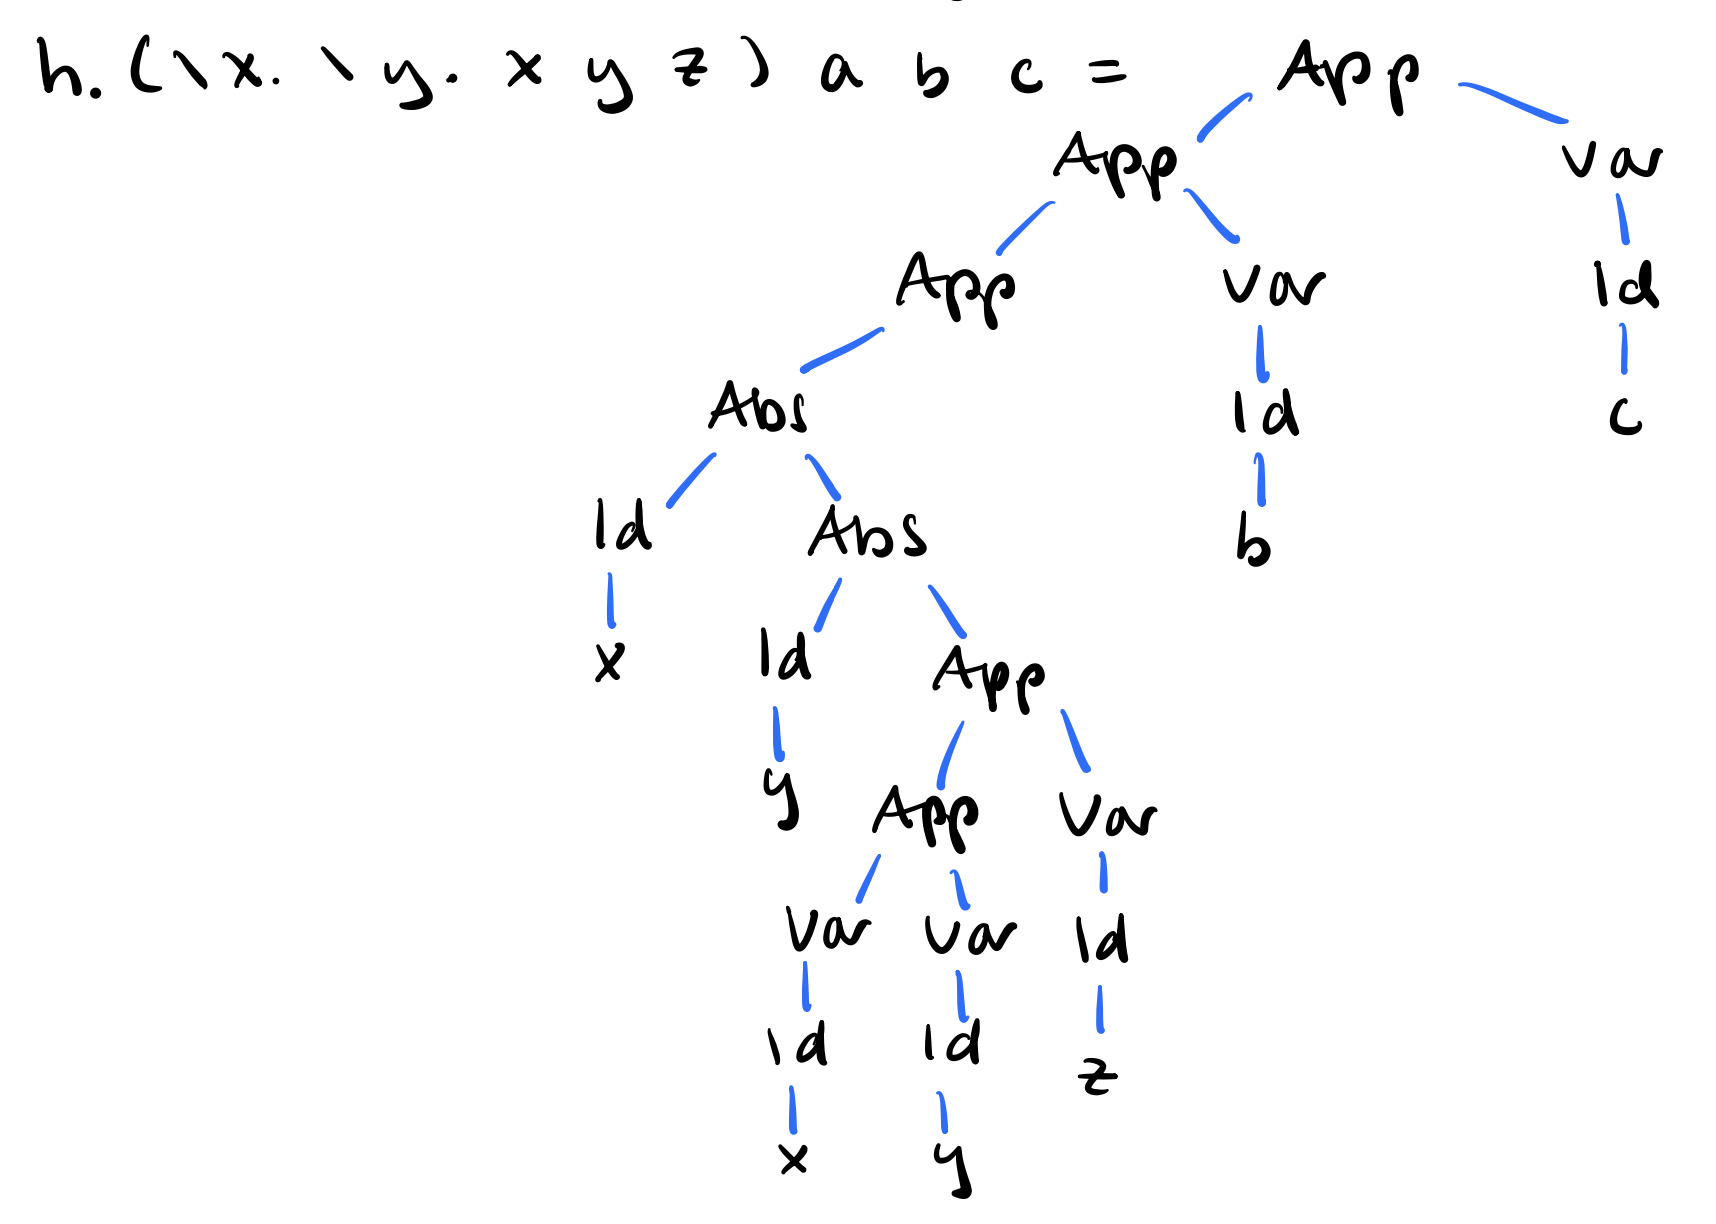 h. (\x. \y. x y z) a b c = App
App Var
App Var Id
Abs Id c
Id Abs b
x Id App
y App Var
Var Var Id
Id Id z
x y